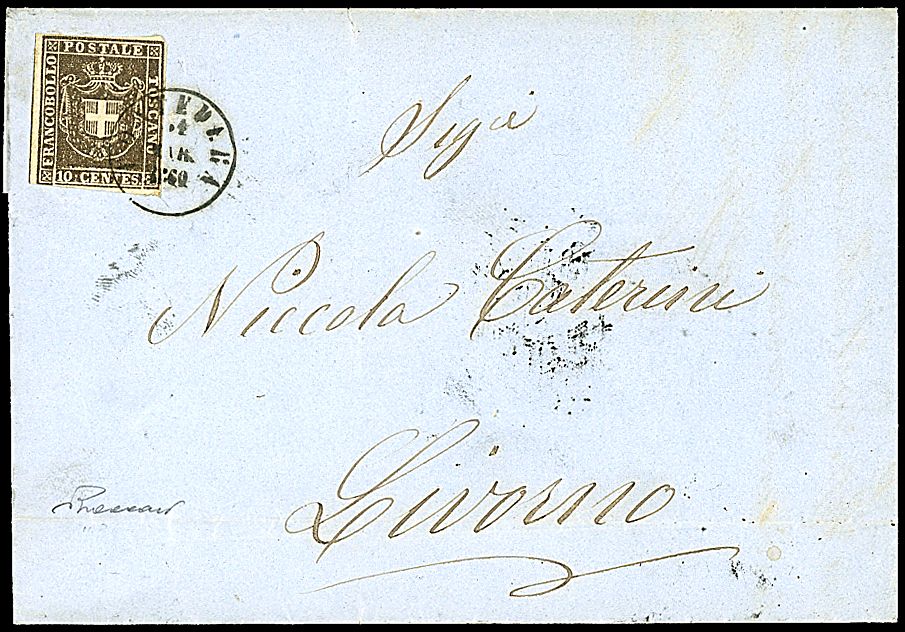 FRANCOBOLLO POSTALE TOSCANO
10 CENTES
Sigre
Niccola Caterini
Livorno